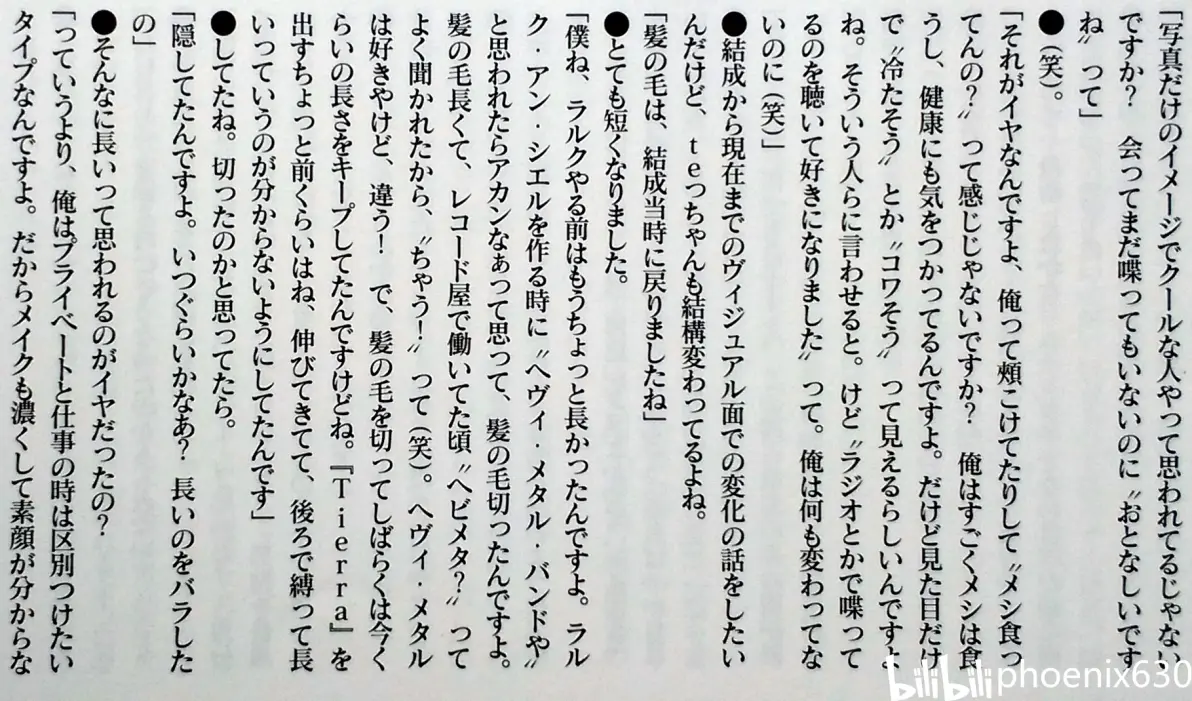 「写真だけのイメージでクールな人やって思われてるじゃない
ですか?　会ってまだ喋ってもいないのに〝おとなしいです
ね〟って」
●(笑)。
「それがイヤなんですよ、俺って頬こけてたりして〝メシ食っ
てんの?〟って感じじゃないですか?　俺はすごくメシは食
うし、健康にも気をつかってるんですよ。だけど見た目だけ
で〝冷たそう〟とか〝コワそう〟って見えるらしいんですよ
ね。そういう人らに言わせると。けど〝ラジオとかで喋って
るのを聴いて好きになりました〟って。俺は何も変わってな
いのに(笑)」
●結成から現在までのヴィジュアル面での変化の話をしたい
んだけど、teっちゃんも結構変わってるよね。
「髪の毛は、結成当時に戻りましたね」
●とても短くなりました。
「僕ね、ラルクやる前はもうちょっと長かったんですよ。ラル
ク・アン・シエルを作る時に〝ヘヴィ・メタル・バンドや〟
と思われたらアカンなぁって思って、髪の毛切ったんですよ。
髪の毛長くて、レコード屋で働いてた頃〝ヘビメタ?〟って
よく聞かれたから、〝ちゃう!〟って(笑)。ヘヴィ・メタル
は好きやけど、違う!　で、髪の毛を切ってしばらくは今く
らいの長さをキープしてたんですけどね。『Tierra』を
出すちょっと前くらいはね、伸びてきてて、後ろで縛って長
いっていうのが分からないようにしてたんです」
●してたね。切ったのかと思ってたら。
「隠してたんですよ。いつぐらいかなあ?　長いのをバラした
の」
●そんなに長いって思われるのがイヤだったの?
「っていうより、俺はプライベートと仕事の時は区別つけたい
タイプなんですよ。だからメイクも濃くして素顔が分からな
bilibili phoenix630